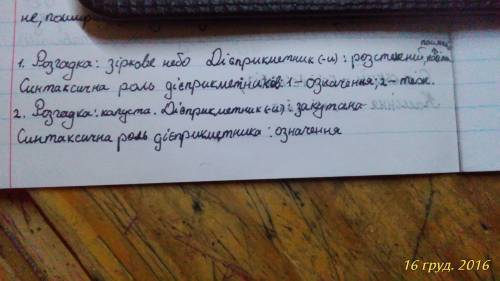 не, пошир
1. Розгадка: зіркове небо Дієприкметник (-и): розстелений,
Синтаксична роль дієприкметників: 1 - означення; 2 - теж.
2. Розгадка: капуста. Дієприкметник (-и): закутана
Синтаксична роль дієприкметника: означення
16 груд. 2016